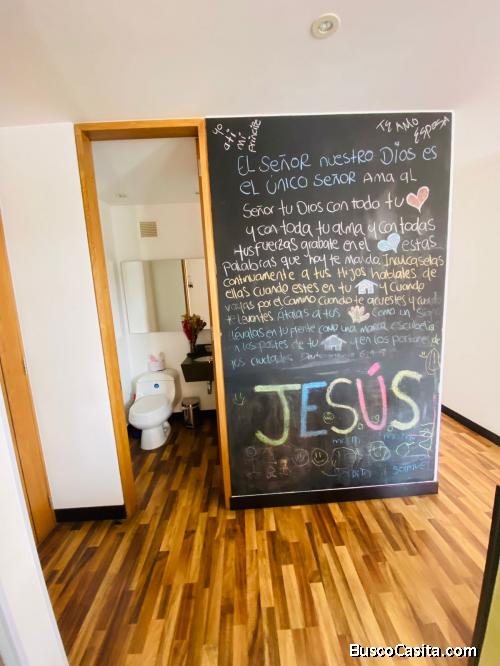 yo
a ti
mi
principe
TE AMO
ESPOSA
EL SEÑOR NUESTRO DIOS ES
EL ÚNICO SEÑOR AMA AL
SEÑOR tu DIOS con todo tu
y con toda tu alma y con todas
tus fuerzas grabate en el estas
Palabras que hoy te mando. Inculcaselas
continuamente a tus Hijos hablales de
ellas cuando estes en tu y cuando
vayas por el Camino Cuando te acuestes y cuando
te levantes Atalas a tus como un
en tu frente como una marca
en los postes de tu y en los portones de
tus ciudades
JESÚS
BuscoCasita.com